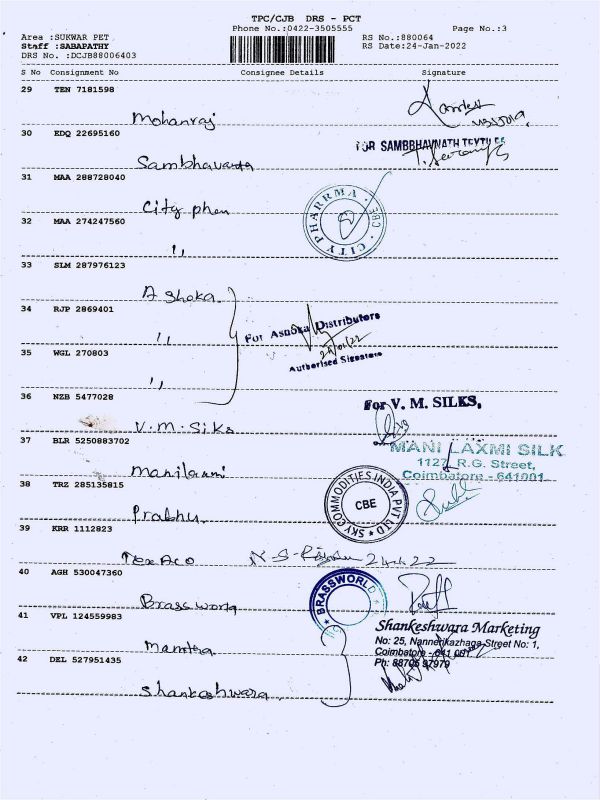 TPC/CJB DRS - PCT
Phone No.:0422-3505555 Page No.:3
Area :SUKWAR PET RS No.:880064
Staff :SABAPATHY RS Date:24-Jan-2022
DRS No. :DCJB88006403
S No Consignment No Consignee Details Signature
29 TEN 7181598
Mohanraj
30 EDQ 22695160
FOR SAMBBHAVNATH TEXTILES
Sambhavanta
31 MAA 288728040
City phan
CITY PHARRMA CBE
32 MAA 274247560
"
33 SLM 287976123
Ashoka
34 RJP 2869401
For Ashoka Distributors
"
24/01/22
35 WGL 270803
Authorised Signatore
"
36 NZB 5477028
For V. M. SILKS,
V.M. Siks
37 BLR 5250883702
MANI LAXMI SILK
1127, R.G. Street,
Coimbatore - 641001
Manilaxmi
38 TRZ 285135815
SKY COMMODITIES INDIA PVT LTD
CBE
Prabhu
39 KRR 1112823
Texaco 24.1.22
40 AGH 530047360
BRASSWORLD
Brassworld
41 VPL 124559983
Shankeshwara Marketing
No: 25, Nannerikazhaga Street No: 1,
Mamtha
Coimbatore - 641 001
42 DEL 527951435
Ph: 88706 97979
Shankeshwara